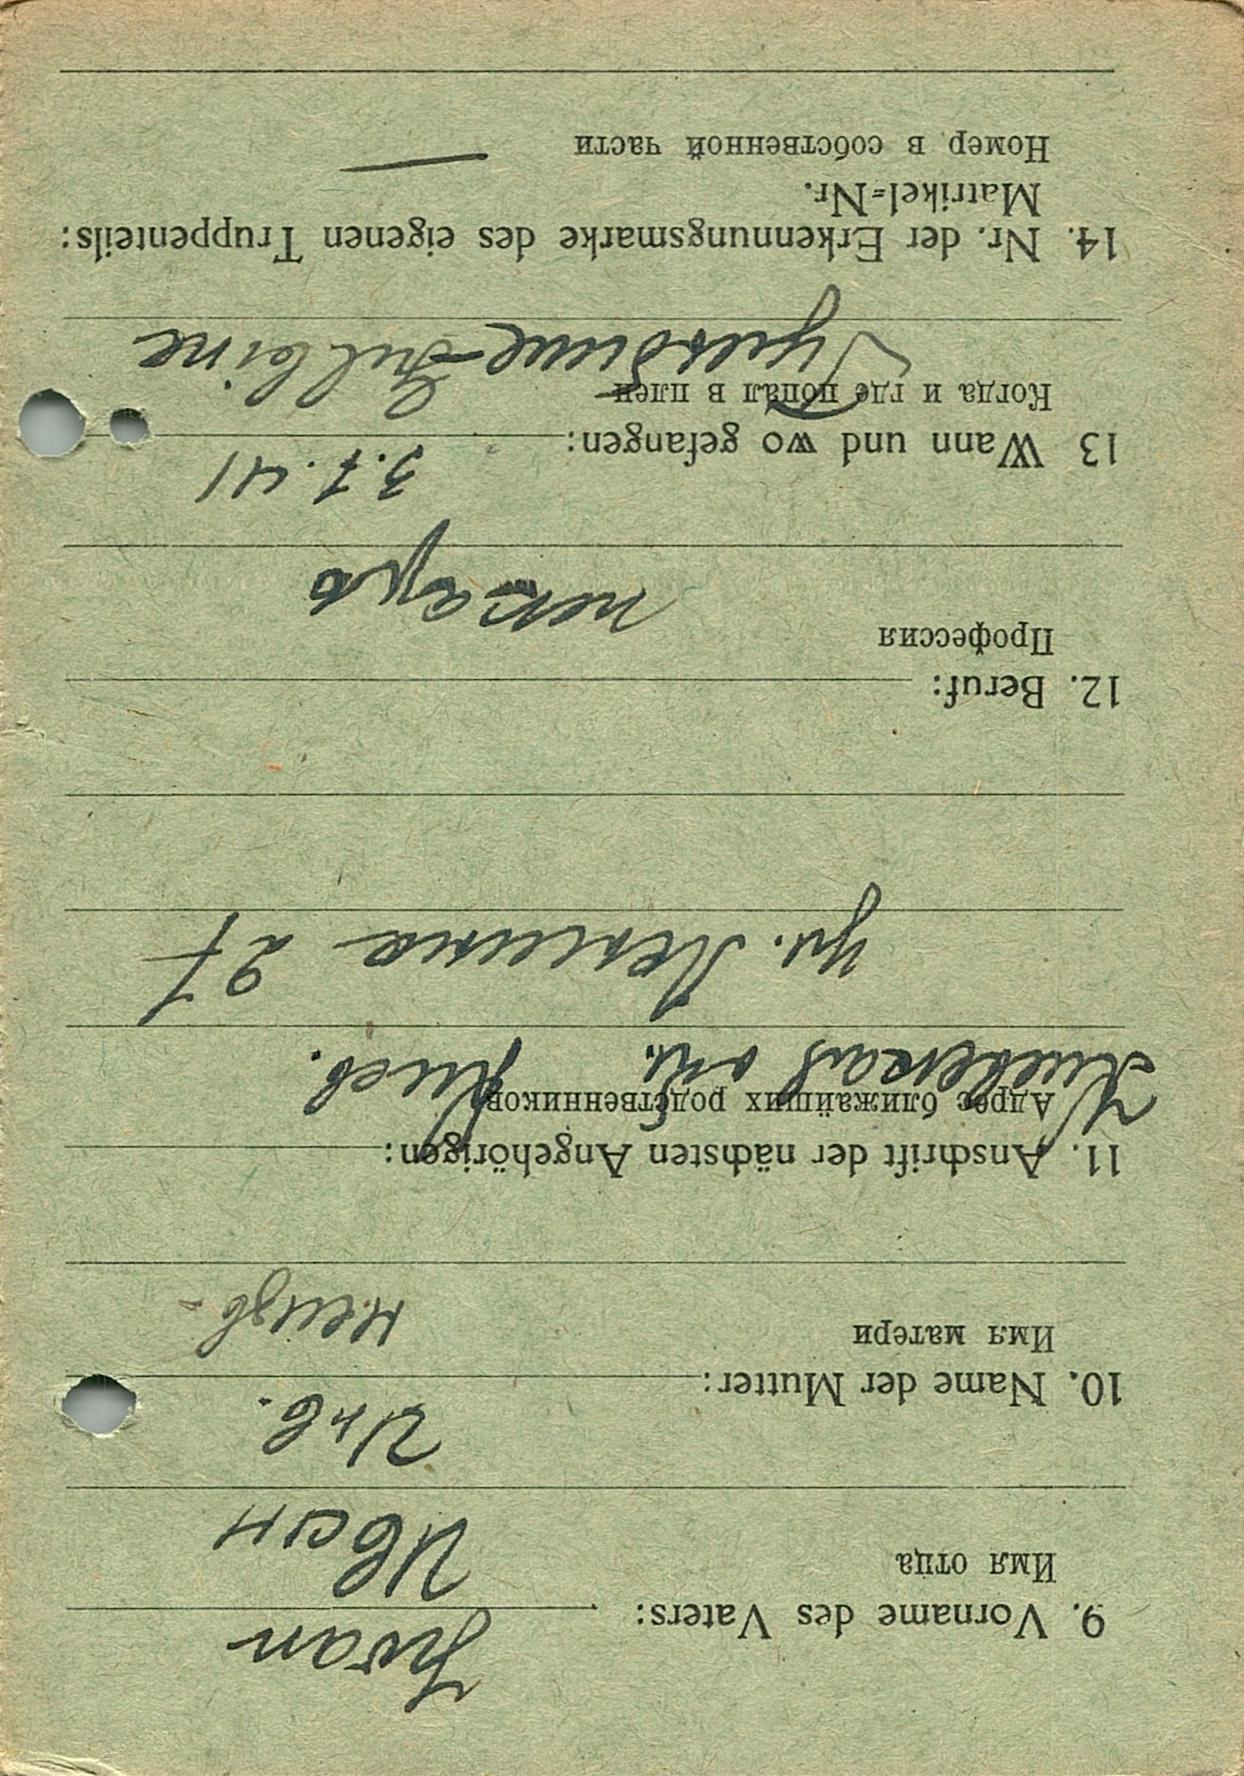 Iwan
9. Vorname des Vaters:
Имя отца
Иван
10. Name der Mutter:
Имя матери
неизв-
11. Anschrift der nächsten Angehörigen:
Адрес ближайших родственников
Киевская Киев.
ул. Ленина 27
12. Beruf:
Профессия
пекарь
13 Wann und wo gefangen: 3.7.41
Когда и где попал в плен
Гульбине Gulbine
14. Nr. der Erkennungsmarke des eigenen Truppenteils:
Matrikel=Nr.
Номер в собственной части —